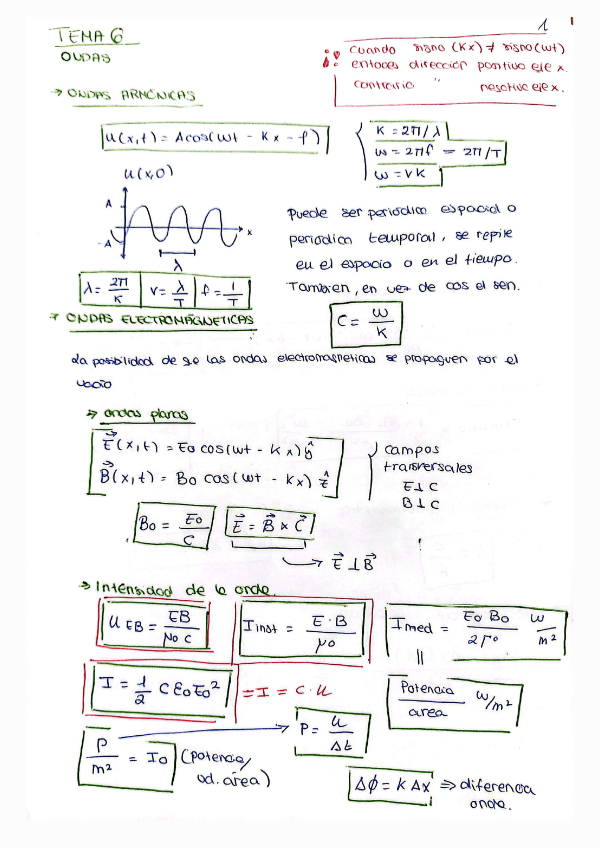 1
TEMA 6
ONDAS
¡! cuando signo (Kx) ≠ signo(wt)
entoces dirección positivo eje x.
contrario " negativo eje x.
→ ONDAS ARMÓNICAS
u(x,t) = A cos(wt - Kx - φ)
K = 2π/λ
w = 2πf = 2π/T
w = vK
u(x,0)
A
-A
x
λ
Puede ser periódica espacial o
periodica temporal, se repite
en el espacio o en el tiempo.
Tambien, en vez de cos el sen.
λ = 2π/K v = λ/T f = 1/T
→ ONDAS ELECTROMAGNETICAS
C = w/K
La posibilidad de q.e las ondas electromagneticas se propaguen por el
vacio
→ ondas planas
E⃗(x,t) = Eo cos(wt - Kx) ŷ
B⃗(x,t) = Bo cos(wt - Kx) ẑ
campos
transversales
E⊥C
B⊥C
Bo = Eo/C E⃗ = B⃗ × C⃗
→ E⃗ ⊥ B⃗
→ Intensidad de la onda.
u EB = EB/μo c I inst = E·B/μo I med = Eo Bo/2μo w/m²
||
I = 1/2 C Eo Eo² = I = C·u
Potencia/area w/m²
P/m² = Io (potencia/
ud. área)
P = u/Δt
Δϕ = K Δx ⇒ diferencia
onda.